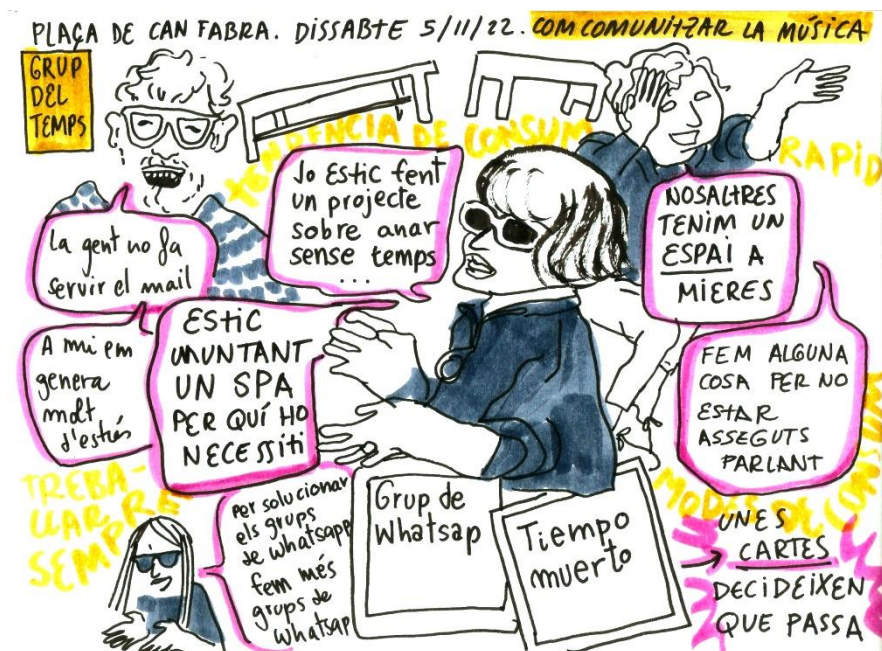 PLAÇA DE CAN FABRA. DISSABTE 5/11/22. COM COMUNITZAR LA MÚSICA
GRUP
DEL
TEMPS
TENDÈNCIA DE CONSUM
RAPID
La gent no fa
servir el mail
Jo Estic fent
un projecte
sobre anar
sense temps
...
NOSALTRES
TENIM UN
ESPAI A
MIERES
A mi em
genera
molt
d'estrés
ESTIC
MUNTANT
UN SPA
PER QUÍ HO
NECESSITI
FEM ALGUNA
COSA PER NO
ESTAR
ASSEGUTS
PARLANT
TREBA-
LLAR
SEMPRE
Per solucionar
els grups
de whatsapp
fem més
grups de
whatsap
Grup de
Whatsap
Tiempo
muerto
MODES DE CONSUM
UNES
CARTES
DECIDEIXEN
QUE PASSA